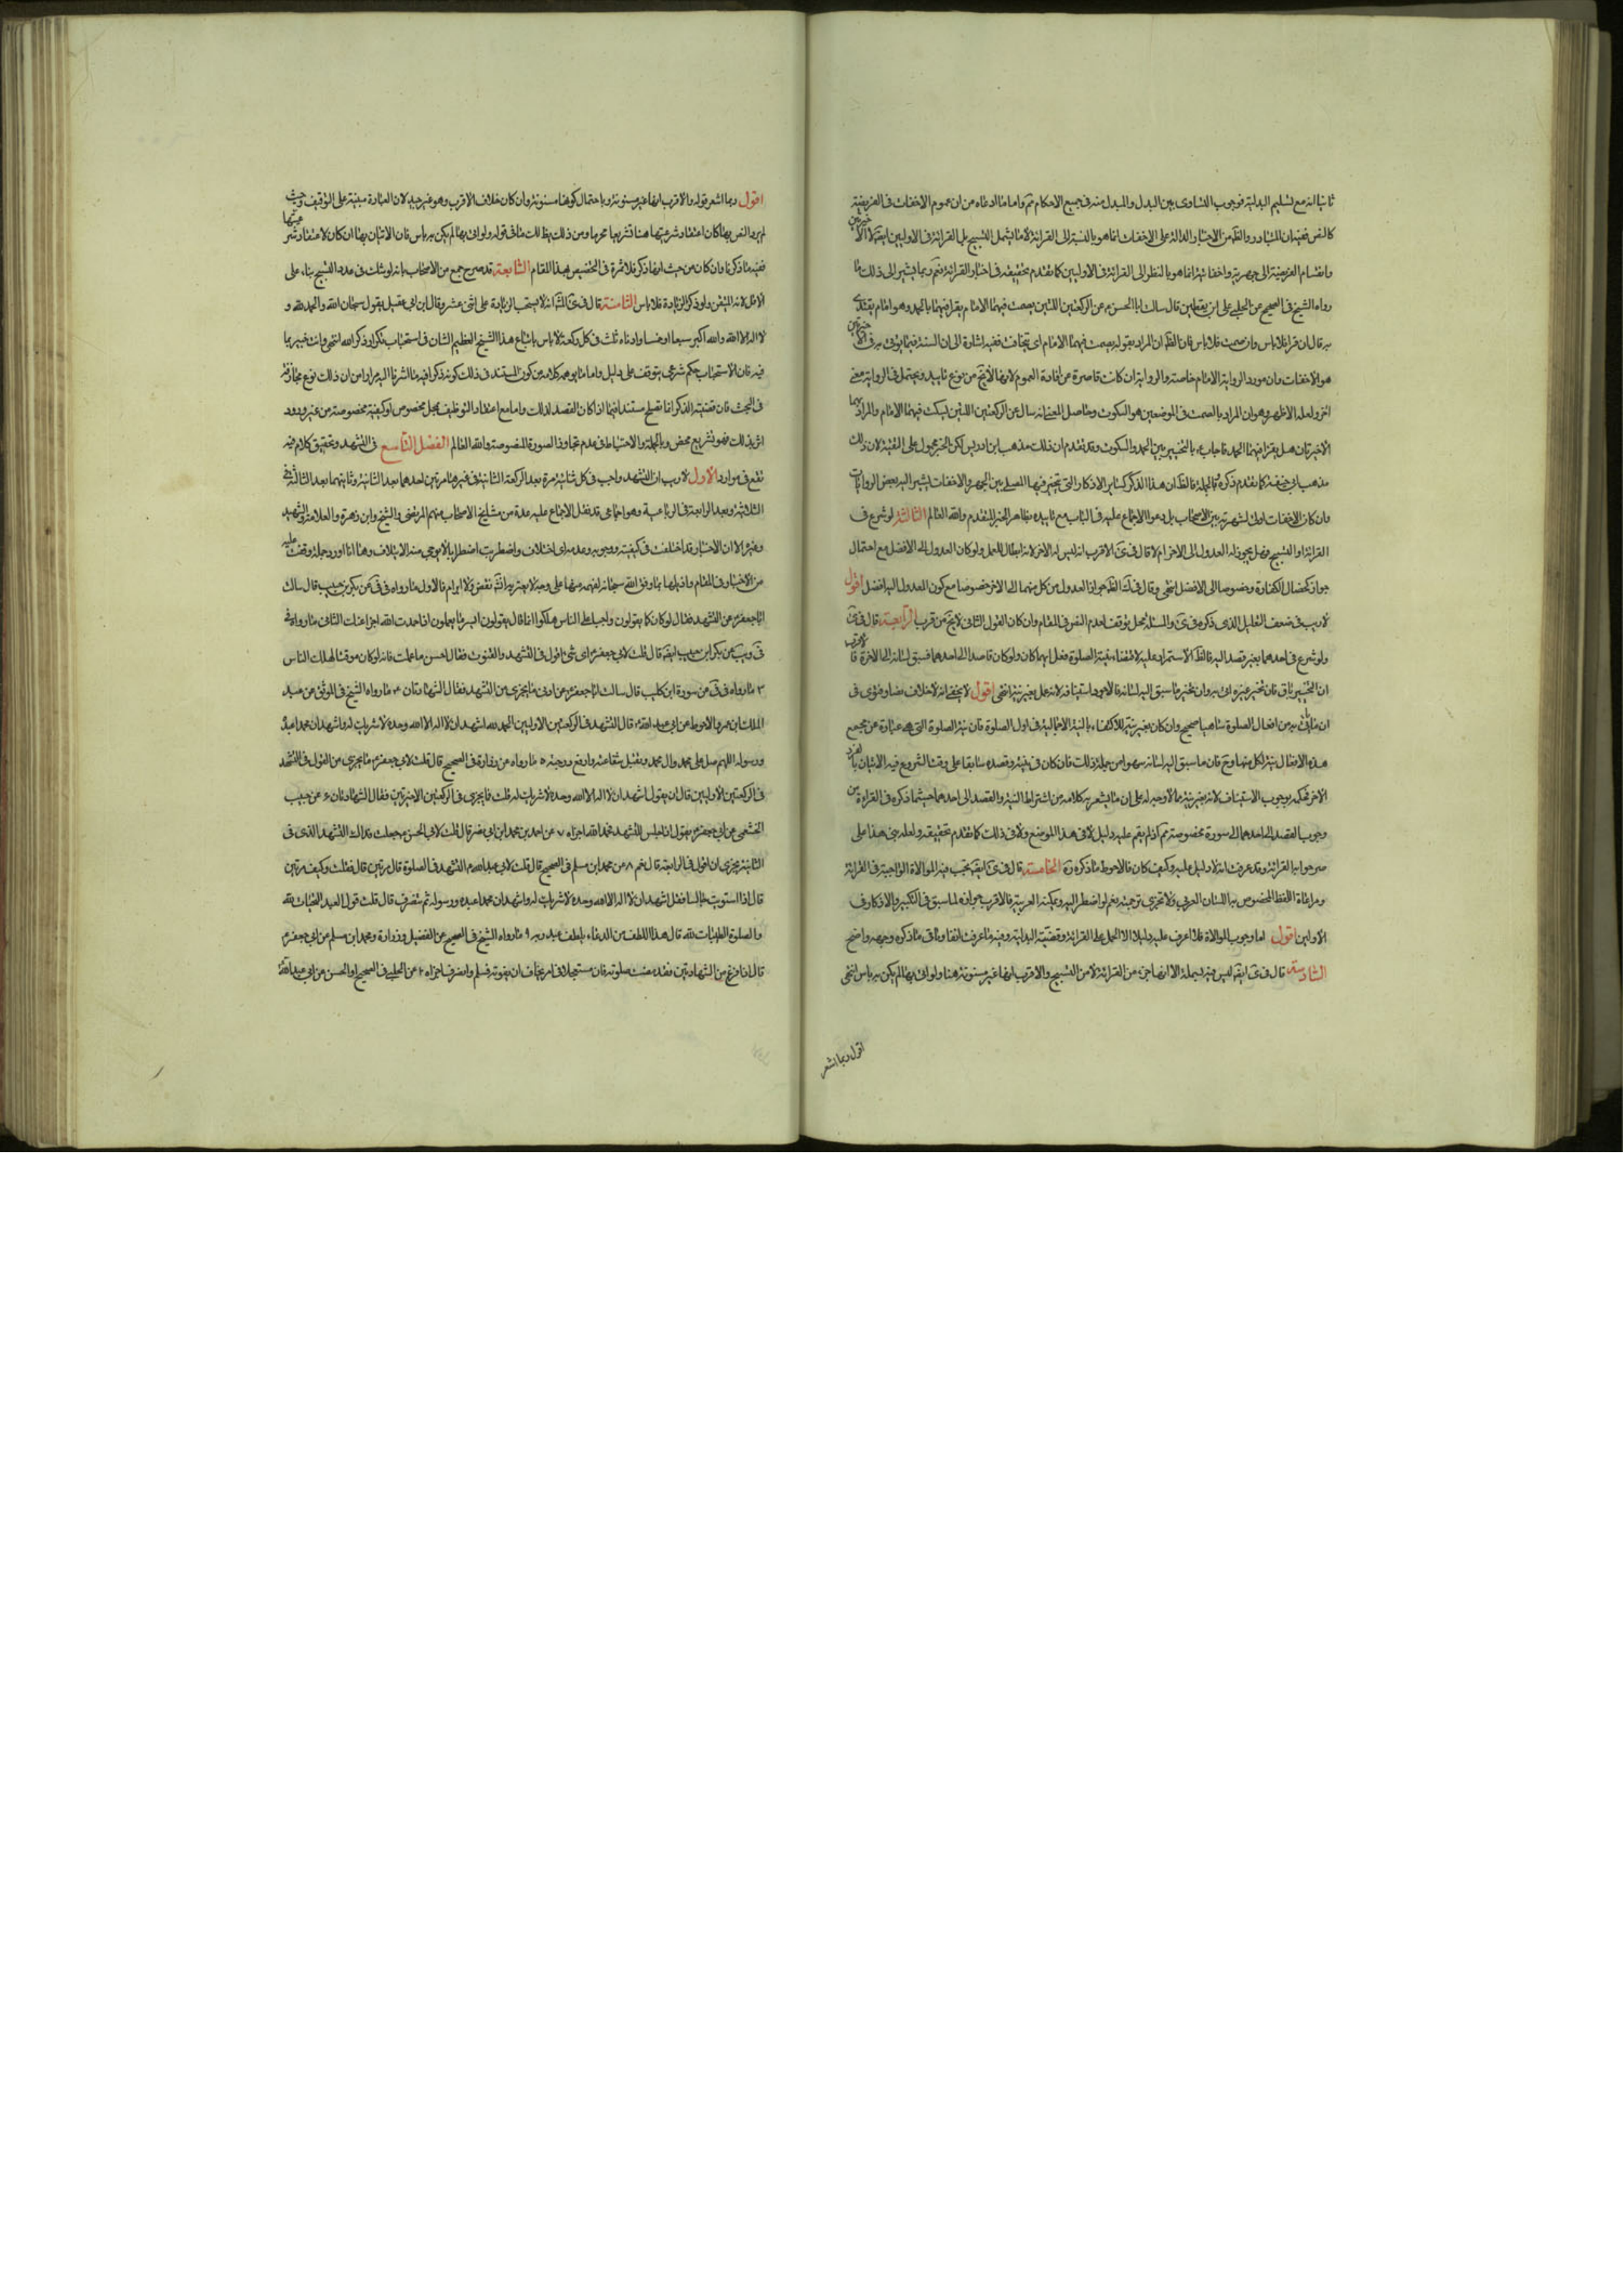 ثانيا انه مع تسليم البدلية فوجوب التساوى بين البدل والمبدل منه فى جميع الاحكام مم واما ما ادعاه من ان عموم الاخفات فى الفريضة
كالنص ففيه ان المتبادر والظ من الاخبار الدالة على الاخفات انما هو بالنسبة الى القرائة لا ما يشمل التسبيح بل القرائة فى الاوليين ايضا لا الاخيرتين
وانقسام الفريضة الى جهرية واخفاتية انما هو بالنظر الى القرائة فى الاوليين كما تقدم تحقيقه فى اخبار القرائة نعم ربما يشير الى ذلك ما
رواه الشيخ فى الصحيح عن على ابن يقطين قال سالت ابا الحسن ع عن الركعتين اللتين يصمت فيهما الامام يقرا فيهما بالحمد وهو امام يقتدى
به قال ان قرا فلا باس وان صمت فلا باس فان الظ ان المراد بقوله يصمت فيهما الامام اى يخافت ففيه اشارة الى ان السنة فيما يؤتى به فى الاخيرتين
هو الاخفات وان مورد الرواية الامام خاصة والرواية ان كانت قاصرة عن افادة العموم لا انها لا تخ من نوع تاييد ويحتمل فى الرواية معنى
اخر ولعله الاظهر وهو ان المراد بالصمت فى الموضعين هو السكوت وحاصل المعنى انه سال عن الركعتين اللتين ليسكت فيهما الامام والمراد بهما
الاخيرتان هل يقرا فيهما الحمد فاجاب ع بالتخيير بين الحمد والسكوت وقد تقدم ان ذلك مذهب ابن ادريس لكن الخبر محمول على التقية لان ذلك
مذهب ابى حنيفة كما تقدم ذكره وبالجملة فالظ ان هذا الذكر كسائر الاذكار التى يتخير فيها المصلى بين الجهر والاخفات كما يشير اليه بعض الروايات
وان كان الاخفات اولى لشهرته بين الاصحاب بل دعوا الاجماع عليه فى الباب مع تاييده بظاهر الخبر المتقدم والله العالم الثالثة لو شرع فى
القرائة او التسبيح فهل يجوز له العدول الى الاخر ام لا قال فى ى الاقرب انه ليس له الاخر لانه ابطال للعمل ولو كان العدول الى الافضل مع احتمال
جوازه كخصال الكفارة وخصوصا الى الافضل انتهى وقال فى ك الظ جواز العدول من كل منهما الى الاخر خصوصا مع كون المعدول اليه افضل اقول
لا ريب فى ضعف التعليل الذى ذكره فى ى والمسئلة محل توقف لعدم النص فى المقام وان كان القول الثانى لا يخ من قرب الرابعة قال فى ى
ولو شرع فى احدهما بغير قصد اليه فالظ الاستمرار عليه لاقتضاء نية الصلوة فعل ايهما كان ولو كان قاصدا الى احدهما فسبق لسانه الى الاخر فالاقرب
ان التخيير باق فان تخير غيره اتى به وان تخير ما سبق اليه لسانه فالاجود استينافه لانه عمل بغير نية انتهى اقول لا يخفى انه لا خلاف نصا وفتوى فى
ان ما ياتى به من افعال الصلوة ساهيا صحيح وان كان بغير نية للاكتفاء بالنية الاجمالية فى اول الصلوة فان نية الصلوة التى هى عبارة عن مجمع
هذه الافعال نية لكل منها وح فان ما سبق اليه لسانه سهوا من جملة ذلك فان كان فى نيته وقصده سابقا على وقت الشروع فيه الاتيان بالفرد
الاخر فحكمه بوجوب الاستيناف لانه بغير نية مما لا وجه له على ان ما يشعر به كلامه من اشتراط النية والقصد الى احدهما حيثما ذكره فى القراءة من
وجوب القصد الى احدهما الى سورة مخصوصة مم كذ لم يقم عليه دليل لا فى هذا الموضع ولا فى ذلك كما تقدم تحقيقه ولعله بنى هذا على
صرحوا به القرائة وقد عرفت انه لا دليل عليه وكيف كان فالاحوط ما ذكره ره الخامسة قال فى ى ايضا يجب فيه الموالاة الواجبة فى القرائة
ومراعاة اللفظ المخصوص به اللسان العربى ولا تجزى ترجمته نعم لو اضطر اليه ولم يمكنه العربية فالاقرب جوازه لما سبق فى التكبير والاذكار فى
الاوليين اقول اما وجوب الموالاة فلا اعرف عليه دليلا الا الحمل على القرائة وقضية البدلية وفيه ما عرفت انفا وباقى ما ذكره وجهه واضح
السادسة قال فى ى ايضا ليس فيه بسملة الا انها جزء من القرائة لا من التسبيح والاقرب انها غير مسنونة هنا ولو اتى بها لم يكن به باس انتهى
اقول ربما اشعر
اقول ربما اشعر قوله والاقرب انها غير مسنونة باحتمال كونها مسنونة وان كان خلاف الاقرب وهو غير جيد لان العبادة مبنية على التوقيف وحيث
لم يرد النص بها كان اعتقاد شرعيتها هنا تشريعا محرما ومن ذلك يظ لك ما فى قوله ولو اتى بها لم يكن به باس فان الاتيان بها ان كان لاعتقاد شرعيتها
ففيه ما ذكرنا وان كان من حيث انها ذكر فلا ثمرة فى التخصيص بهذا المقام السابعة قد صرح جمع من الاصحاب بانه لو شك فى عدد التسبيح بناء على
الاقل لانه المتيقن ولو ذكر الزيادة فلا باس الثامنة قال فى ى المش انه لا يستحب الزيادة على اثنى عشر وقال ابن ابى عقيل يقول سبحان الله والحمد لله و
لا اله الا الله والله اكبر سبعا او خمسا وادناه ثلث فى كل ركعة ولا باس باتباع هذا الشيخ العظيم الشان فى استحباب تكرار ذكر الله انتهى وانت خبير بما
فيه فان الاستحباب حكم شرعى يتوقف على دليل واما ما يوهمه كلامه من كون المستند فى ذلك كونه ذكرا ففيه ما اشرنا اليه مرارا من ان ذلك نوع مجازفة
فى البحث فان قضية الذكر انما تصلح مستندا فيما اذا كان القصد لذلك واما مع اعتقاد التوظيف بمحل مخصوص او كيفية مخصوصة من غير ورود
اثر بذلك فهو تشريع محض وبالجملة والاحتياط فى عدم تجاوز الصورة المنصوصة والله العالم الفصل التاسع فى التشهد وتحقيق كلام فيه
تقع فى موارد الاول لا ريب ان التشهد واجب فى كل ثنائية مرة بعد الركعة الثانية وفى غيرها مرتين احدهما بعد الثانية وثانيتهما بعد الثالثة فى
الثلاثية وبعد الرابعة فى الرباعية وهو اجماعى قد نقل الاجماع عليه عدة من مشايخ الاصحاب منهم المرتضى والشيخ وابن زهرة والعلامة والشهيد
وغيره الا ان الاخبار قد اختلفت فى كيفيته ووجوبه وعدمه اى اختلاف واضطربت اضطرابا لا يرجى منه الايتلاف وها انا اورد جملة وقفت عليه
من الاخبار فى المقام واذيلها بما وفق الله سبحانه لفهمه منها على وجه لا يعتريه انش نقض ولا ابرام فالاول ما رواه فى فى عن بكر بن حبيب قال سالت
ابا جعفر ع عن التشهد فقال لو كان كما يقولون واجبا على الناس هلكوا انما كان القوم يقولون ايسر ما يعلمون اذا حمدت الله اجزا عنك الثانى ما رواه فى
فى ويب عن بكر ابن حبيب ايضا قال قلت لابى جعفر ع اى شئ اقول فى التشهد والقنوت فقال احسن ما علمت فانه لو كان موقتا لهلك الناس
٣ ما رواه فى فى عن سورة ابن كليب قال سالت ابا جعفر ع عن ادنى ما يجزى من التشهد فقال الشهادتان ٤ ما رواه الشيخ فى الموثق عن عبد
الملك ابن عمرو الاحول عن ابى عبد الله ع قال التشهد فى الركعتين الاوليين الحمد لله اشهد ان لا اله الا الله وحده لا شريك له واشهد ان محمدا عبده
ورسوله اللهم صل على محمد وال محمد وتقبل شفاعته وارفع درجته ٥ ما رواه عن زرارة فى الصحيح قال قلت لابى جعفر ع ما يجزى من القول فى التشهد
فى الركعتين الاوليين قال ان يقول اشهد ان لا اله الا الله وحده لا شريك له قلت فما يجزى فى الركعتين الاخيرتين فقال الشهادتان ٦ عن حبيب
الخثعمى عن ابى جعفر ع يقول اذا جلس للتشهد فحمد الله اجزاه ٧ عن احمد بن محمد ابن ابى نصر قال قلت لابى الحسن ع جعلت فداك التشهد الذى فى
الثانية يجزى ان اقول فى الرابعة قال نعم ٨ عن محمد ابن مسلم فى الصحيح قال قلت لابى عبد الله ع التشهد فى الصلوة قال مرتين قال قلت وكيف مرتين
قال اذا استويت جالسا فقل اشهد ان لا اله الا الله وحده لا شريك له واشهد ان محمدا عبده ورسوله ثم تنصرف قال قلت قول العبد التحيات لله
والصلوة الطيبات لله قال هذا اللطف من الدعاء يلطف عبد ربه ٩ ما رواه الشيخ فى الصحيح عن الفضيل وزرارة ومحمد ابن مسلم عن ابى جعفر ع
قال اذا فرغ من الشهادتين فقد مضت صلوته فان مستعجلا فى امر يخاف ان يفوته فسلم وانصرف اجزاه ١٠ عن الحلبى فى الصحيح او الحسن عن ابى عبد الله